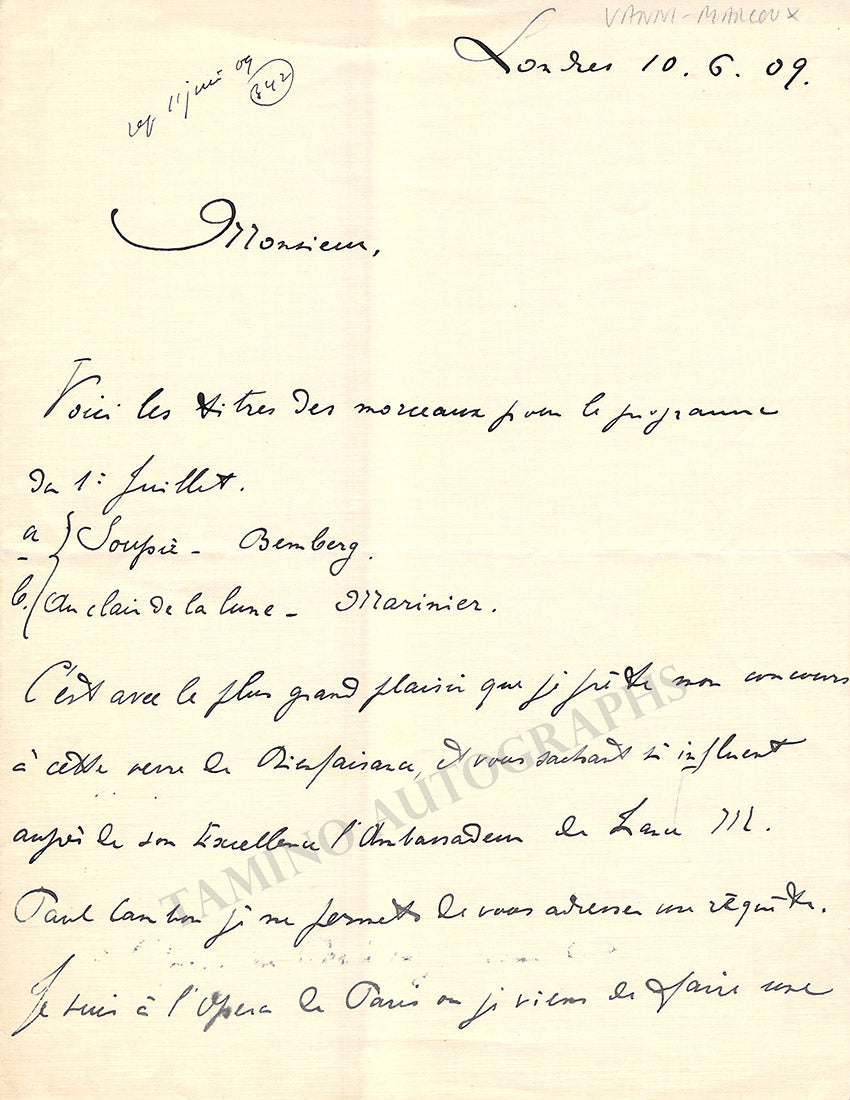 VANNI-MARCOUX
Londres 10. 6. 09.
rep 11 juin 09
342
Monsieur,
Voici les titres des morceaux pour le programme
du 1: Juillet.
a } Soupir - Bemberg.
b. } Au clair de la lune - Marinier.
C'est avec le plus grand plaisir que je prête mon concours
à cette œuvre de Bienfaisance, et vous sachant si influent
auprès de son Excellence l'Ambassadeur de France M.
Paul Cambon je me permets de vous adresser une requête.
Je suis à l'Opera de Paris ou je viens de faire une
TAMINO AUTOGRAPHS